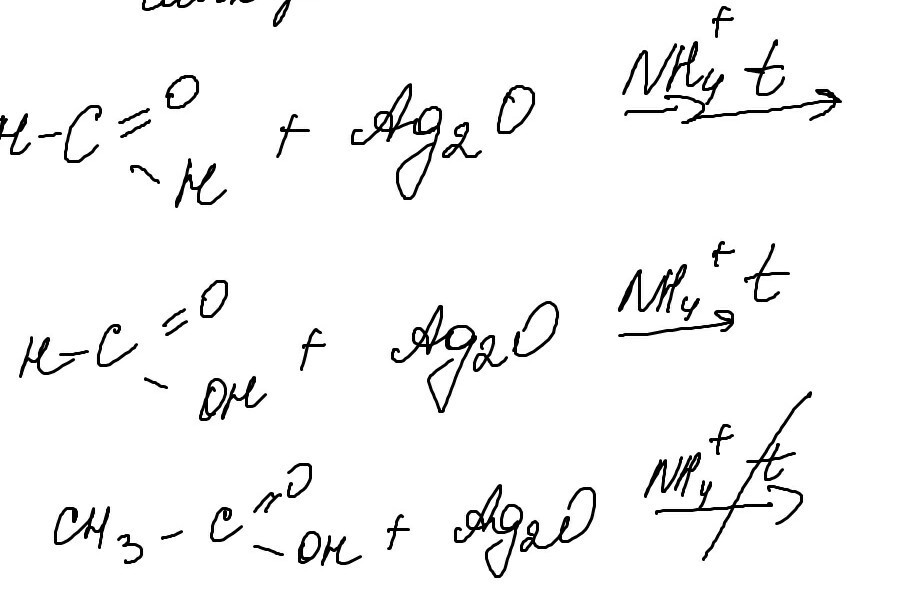 H-C=O-H + Ag2O NH4+ t →
H-C=O-OH + Ag2O NH4+ t →
CH3-C=O-OH + Ag2O NH4+ t →